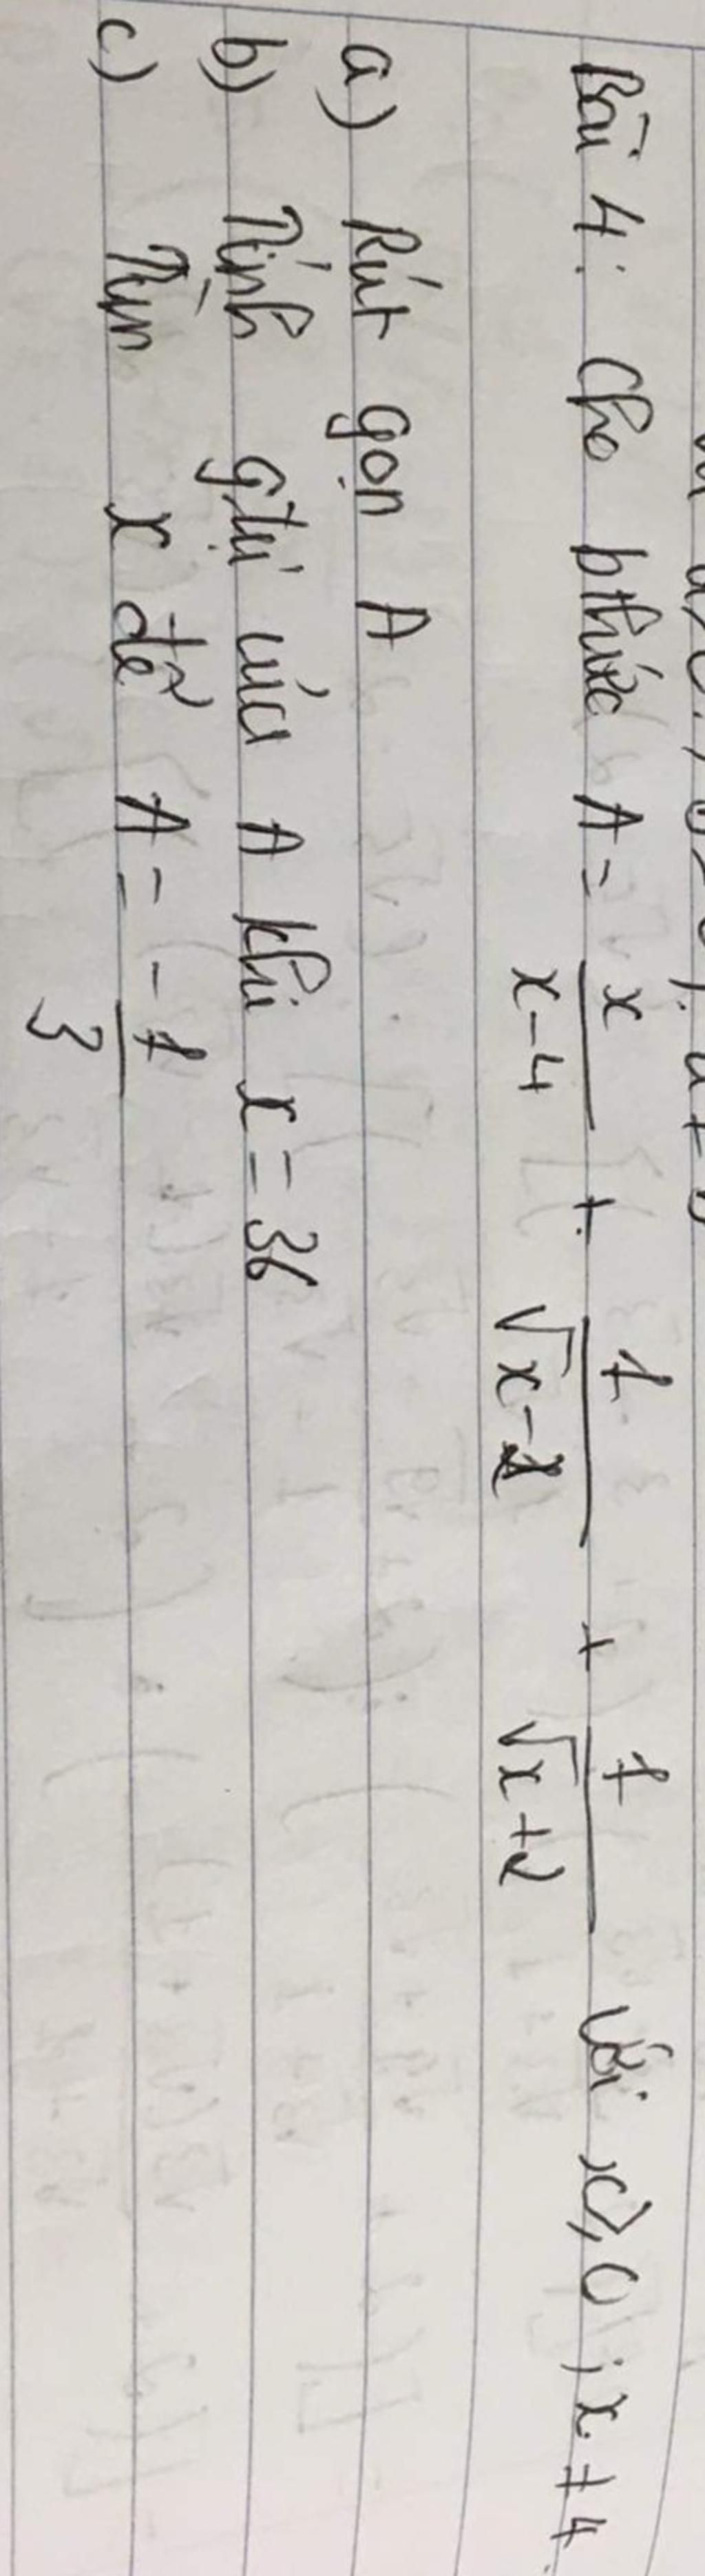 Bài 4: Cho bthức A = x/(x-4) + 1/(√x-2) + 1/(√x+2) với x≥0; x≠4
a) Rút gọn A
b) Tính gtrị của A khi x = 36
c) Tìm x để A = -1/3